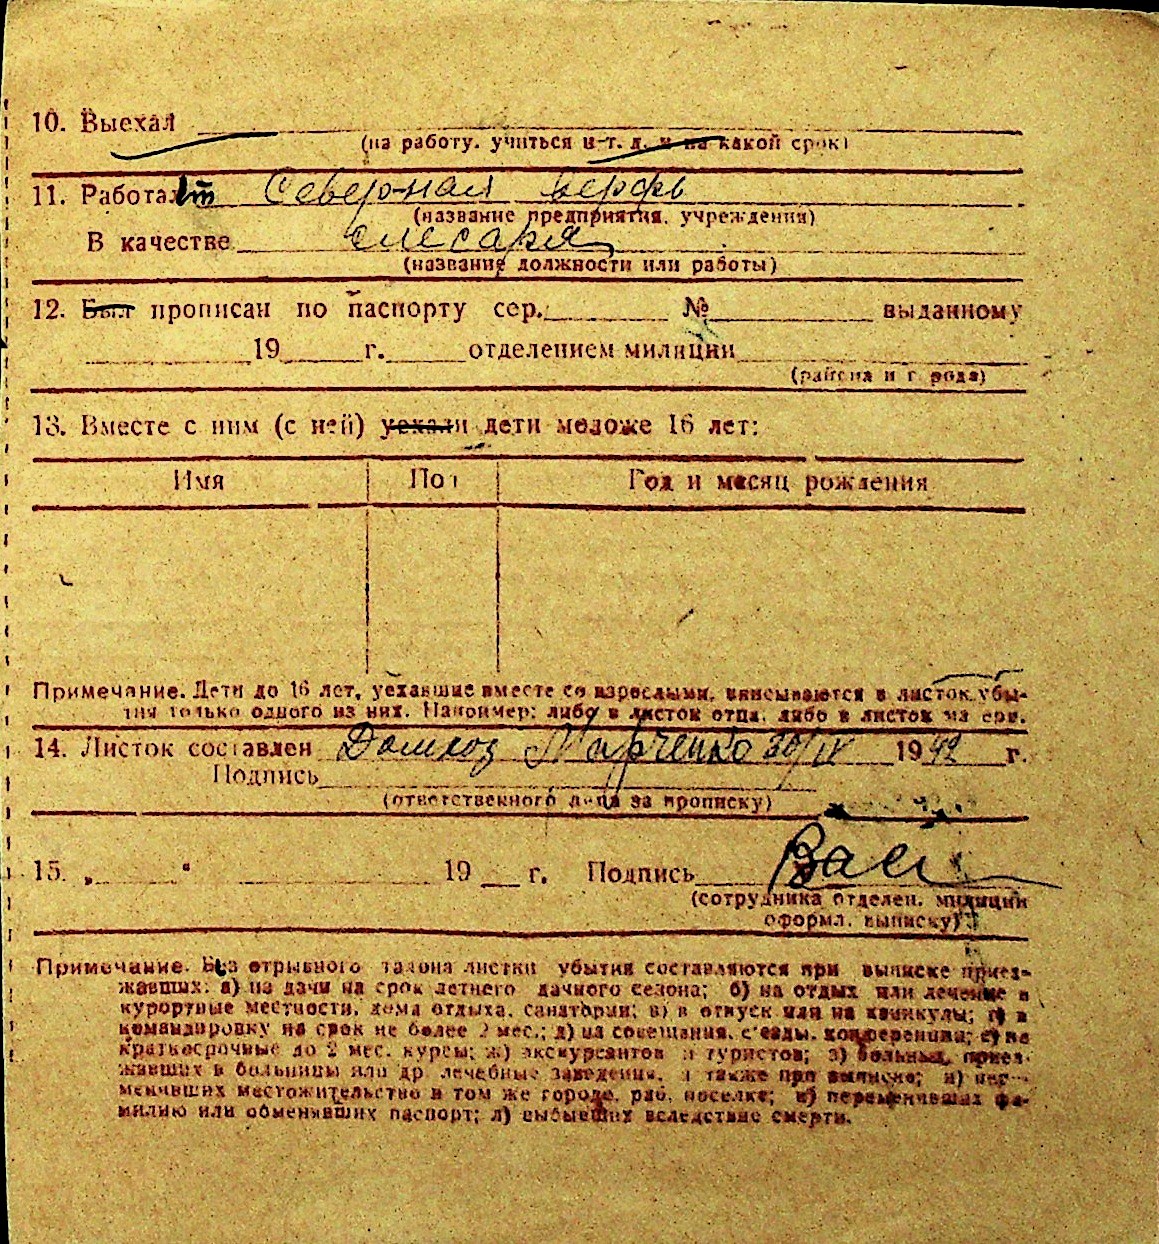 10. Выехал
(на работу, учиться и т. д. и на какой срок)
11. Работает Северная верфь
(название предприятия, учреждения)
В качестве слесаря
(название должности или работы)
12. Был прописан по паспорту сер. № выданному
19 г. отделением милиции
(района и города)
13. Вместе с ним (с ней) уехали дети моложе 16 лет:
Имя Пол Год и месяц рождения
Примечание. Дети до 16 лет, уехавшие вместе со взрослыми, вписываются в листок убы-
тия только одного из них. Например: либо в листок отца, либо в листок матери.
14. Листок составлен Домхоз Марченко 30/IV 1942 г.
Подпись
(ответственного лица за прописку)
15. „ “ 19 г. Подпись
(сотрудника отделен. милиции
оформл. выписку)
Примечание. Без отрывного талона листки убытия составляются при выписке приез-
жавших: а) на дачи на срок летнего дачного сезона; б) на отдых или лечение в
курортные местности, дома отдыха, санатории; в) в отпуск или на каникулы; г) в
командировку на срок не более 2 мес.; д) на совещания, съезды, конференции; е) на
краткосрочные до 2 мес. курсы; ж) экскурсантов и туристов; з) больных, приез-
жавших в больницы или др лечебные заведения, а также при выписке; и) пере-
менивших местожительство в том же городе, раб. поселке; к) переменивших фа-
милию или обменявших паспорт; л) выбывших вследствие смерти.